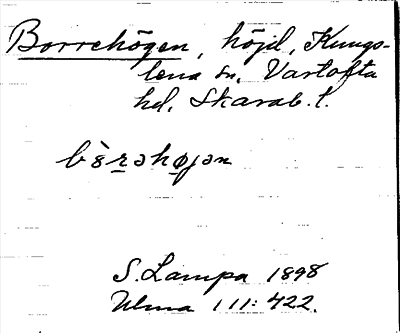 Borrehögen, höjd, Kungs-
lena sn, Vartofta
hd, Skarab. l.
bèrəhøjən
S. Lampa 1898
Ulma 111:422.